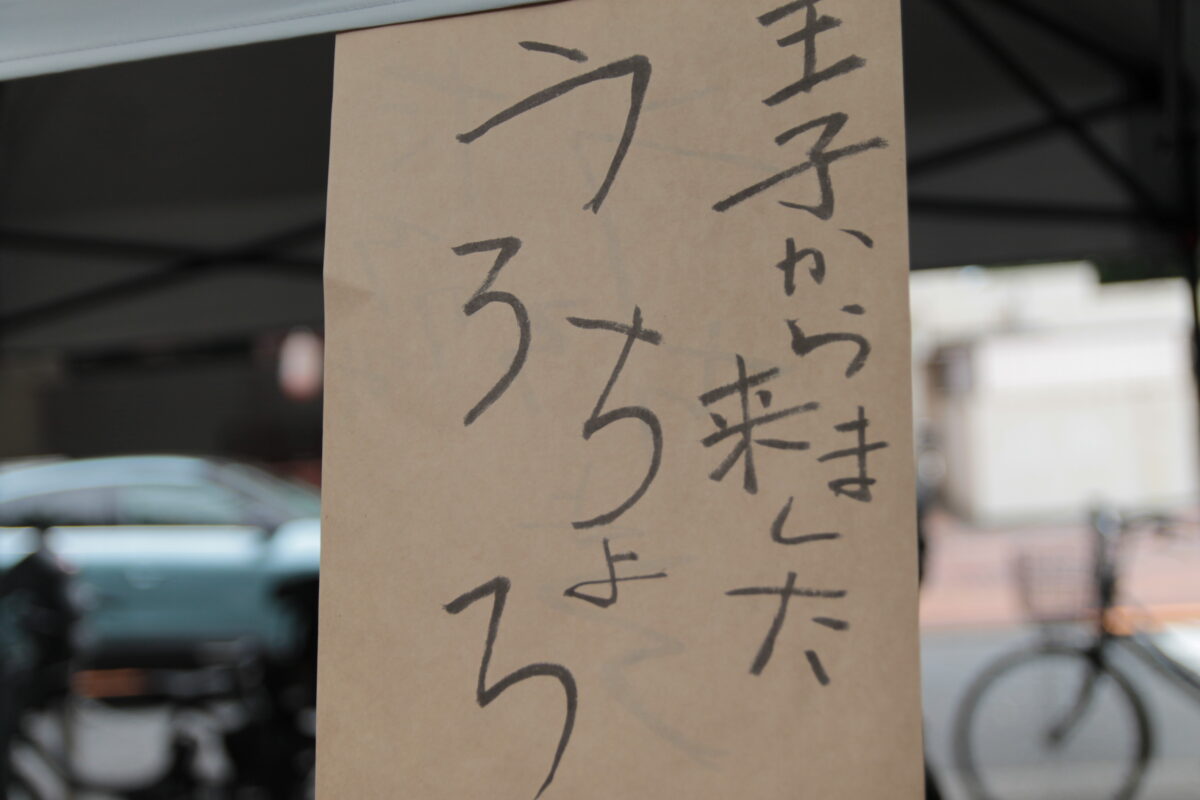 王子から来ました
うろちょろ